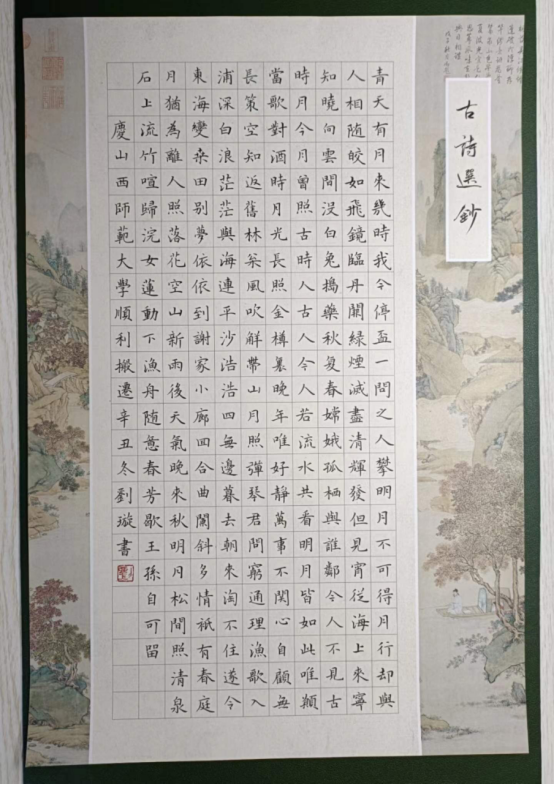 古詩選鈔
青天有月來幾時我今停盃一問之人攀明月不可得月行却與
人相随皎如飛鏡臨丹闕緑煙滅盡清輝發但見宵從海上來寧
知曉向雲間没白兔搗藥秋复春嫦娥孤栖與誰鄰今人不見古
時月今月曾照古時人古人今人若流水共看明月皆如此唯願
當歌對酒時月光長照金樽裏晚年唯好静萬事不関心自顧無
長策空知返舊林枩風吹解帶山月照彈琴君問窮通理漁歌入
浦深白浪茫茫與海連平沙浩浩四無邊暮去朝來淘不住遂令
東海變桑田别夢依依到謝家小廊回合曲闌斜多情衹有春庭
月猶為離人照落花空山新雨後天氣晚來秋明月松間照清泉
石上流竹喧歸浣女蓮動下漁舟随意春芳歇王孫自可留
慶山西師範大學順利搬遷辛丑冬劉璇書